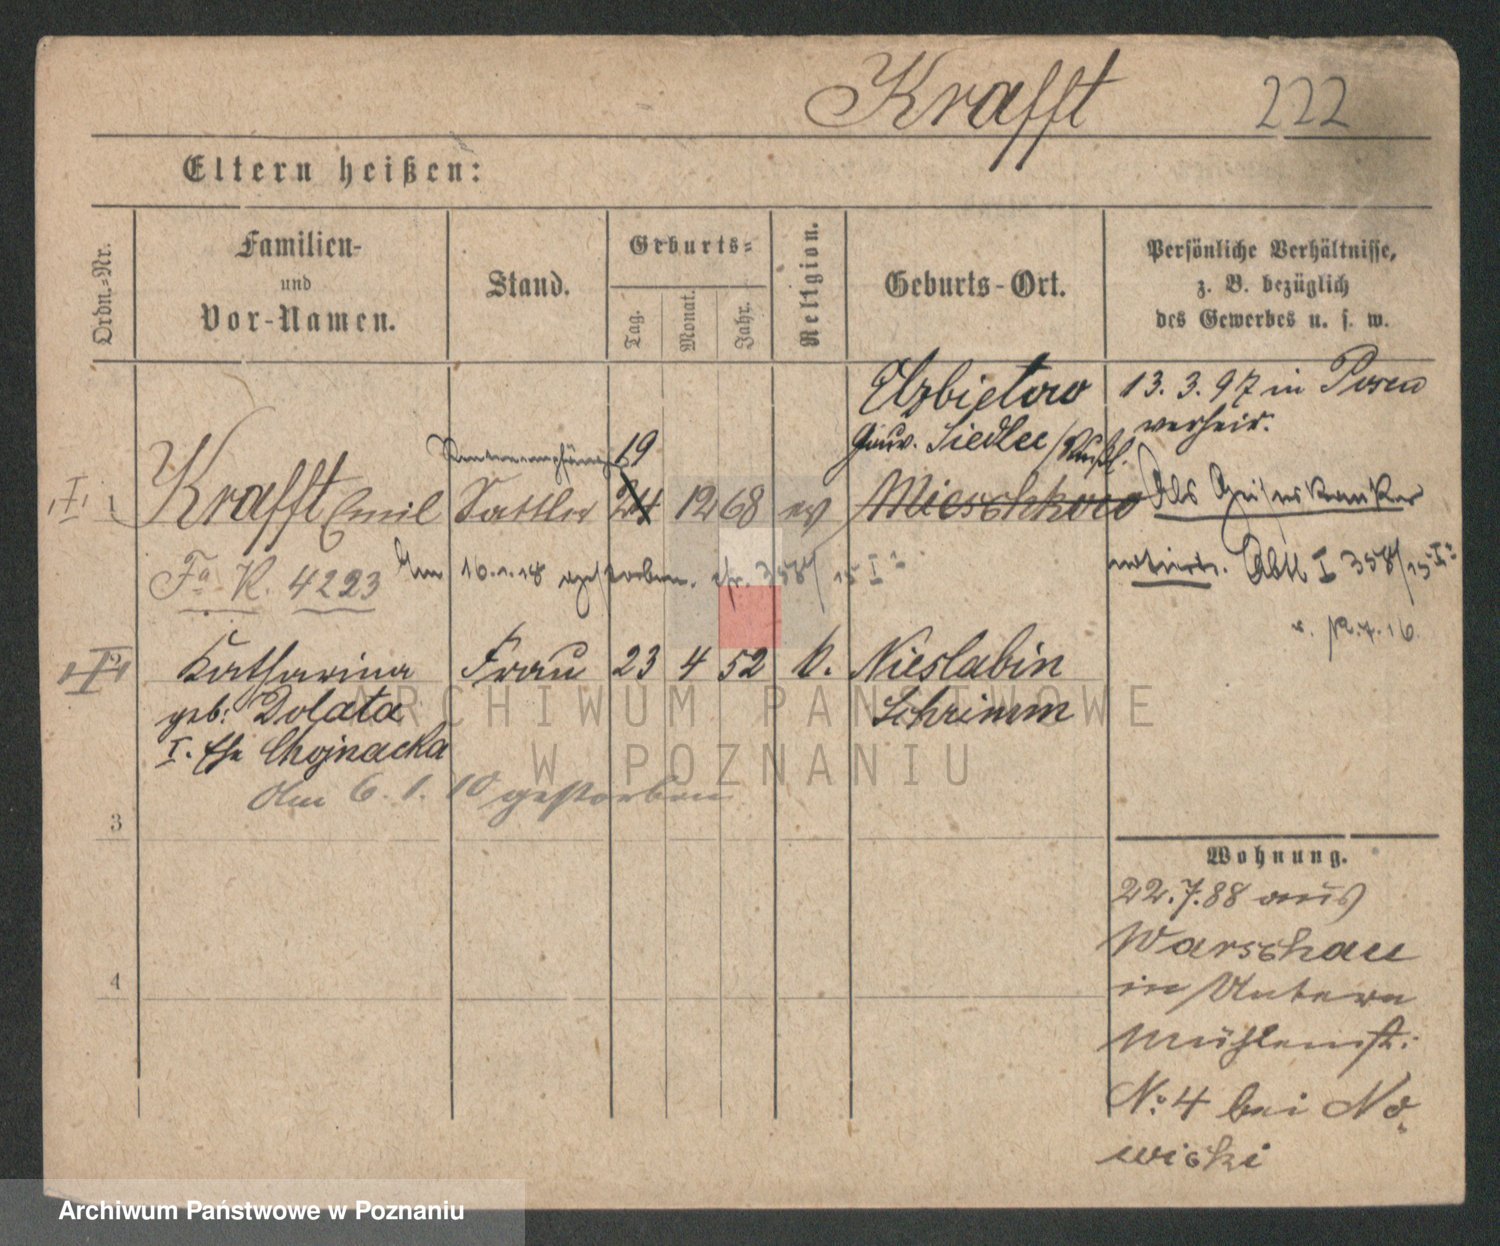 Krafft 222
Eltern heißen:
Ordn.-Nr.
Familien-
und
Vor-Namen.
Stand.
Geburts-
Tag.
Monat.
Jahr.
Religion.
Geburts-Ort.
Persönliche Verhältnisse,
z. B. bezüglich
des Gewerbes u. s. w.
Elzbietow 13. 3. 97 in Posen
Gouv. Siedlec /Rußl. verheir.
Rentenempfänger 19
I 1 Krafft Emil Sattler 24 12 68 ev Mieschkow Als Geisteskranker
Fa K. 4223 Am 10.1.18 gestorben. 358/15 I a notiert. Abtl I 358/15 I a
II Katharina Frau 23 4 52 k. Nieslabin
geb: Dolata Schrimm
I. Ehe Chojnacka
Am 6. 1. 10 gestorben
3
4
Wohnung.
22.7.88 aus
Warschau
in Untern
Mühlenst:
No: 4 bei No
wicki
ARCHIWUM PAŃSTWOWE
W POZNANIU
Archiwum Państwowe w Poznaniu